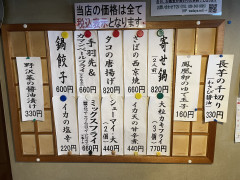 当店の価格は全て
税込表示となります。
長芋の千切り
(わさび醤油)
330円
鳳凰卵のゆで玉子
160円
寄せ鍋
(2人前)
820円
大粒カキフライ
(3個)
770円
さばの西京焼
600円
イカ天の甘辛煮
440円
タコの唐揚げ
820円
シューマイ(大)
(2個)
440円
手羽先&
660円
ミックスフライ
660円
鍋餃子
600円
イカの塩辛
220円
野沢菜の醤油漬け
330円